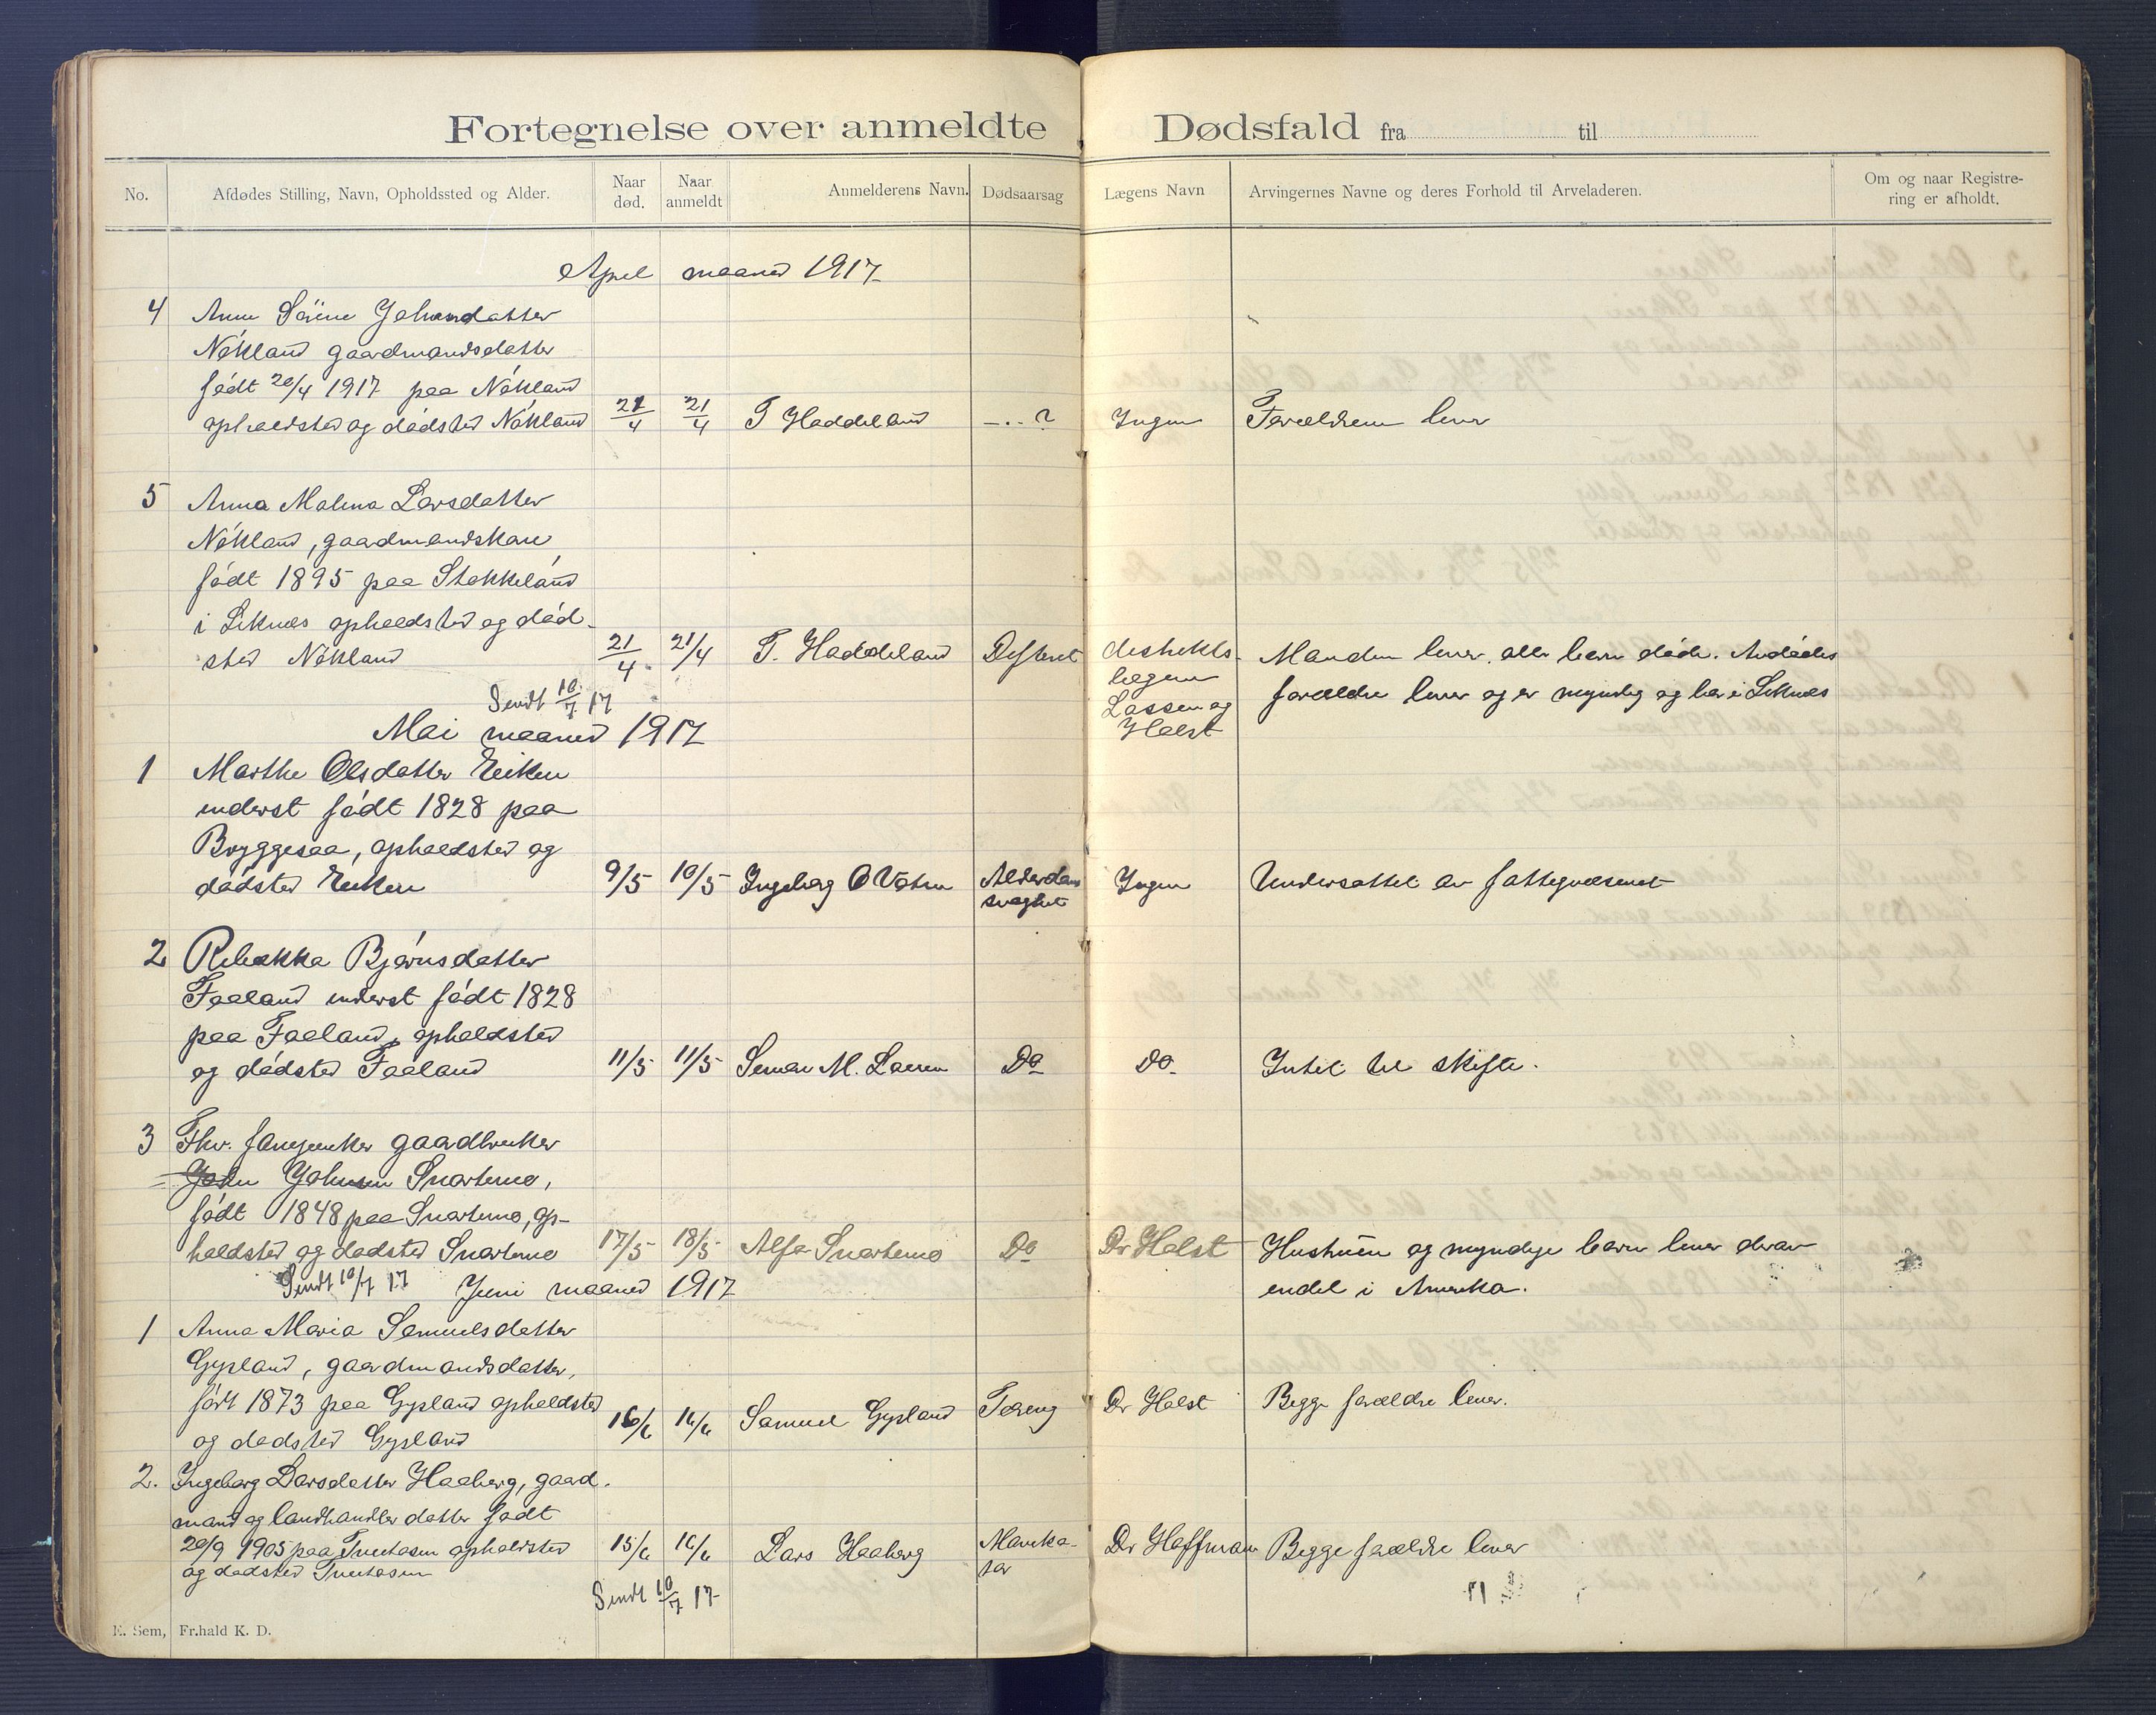 Fortegnelse over anmeldte Dødsfald fra til
No. Afdødes Stilling, Navn, Opholdssted og Alder. Naar død. Naar anmeldt Anmelderens Navn. Dødsaarsag Lægens Navn Arvingernes Navne og deres Forhold til Arveladeren. Om og naar Registrering er afholdt.
April maaned 1917
4 Anne Sörine Johansdatter
Nökland gaardmandsdatter
födt 20/4 1917 paa Nökland
opholdsted og dödsted Nökland 21/4 21/4 T Haddeland -..? Ingen Forældrene lever
5 Anna Malena Larsdatter
Nökland, gaardmandskone
födt 1895 paa Stokkeland
i Liknes opholdsted og död-
sted Nökland 21/4 21/4 T. Haddeland Difterit distrikts- Manden lever, alle barn döde. Avdödes
lægerne
Lassen og forældre lever og er myndig og bor i Liknes
Holst
Sendt 10/7 17
Mai maaned 1917
1 Marthe Olsdatter Eiken
inderst födt 1828 paa
Bryggesaa, opholdsted og
dödsted Eiken 9/5 10/5 Ingeborg O Vatne Alderdoms Ingen Understöttet av fattigvæsenet
svaghet
2 Rebekka Björnsdatter
Faaland inderst födt 1828
paa Faaland, opholdsted
og dödsted Faaland 11/5 11/5 M. Laen Do Do Intet til skifte.
3 Fhv. gaardbruker
John Johnsen Snartemo,
födt 1848 paa Snartemo, op-
holdsted og dödsted Snartemo 17/5 18/5 Alf Snartemo Do Dr Holst Hustruen og myndige barn lever derav
endel i Amerika.
Sendt 10/7 17 Juni maaned 1917
1 Anna Maria Samuelsdatter
Gysland, gaardmandsdatter,
födt 1873 paa Gysland opholdsted
og dödsted Gysland 16/6 16/6 Samuel Gysland Tæring Dr Holst Begge forældre lever.
2. Ingeborg Larsdatter Haaberg, gaard-
mand og landhandler datter födt
20/9 1905 paa opholdsted 15/6 16/6 Lars Haaberg Dr Hoffman Begge forældre lever
og dödsted
Sendt 10/7 17
E. Sem, Fr.hald K. D.